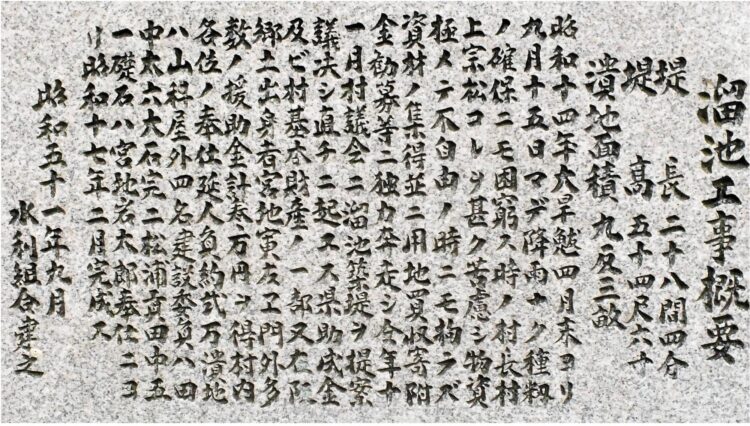 溜池工事概要
堤　長　二十八間四分
堤　高　五十四尺六寸
潰地面積　九反三畝
昭和十四年大旱魃四月末ヨリ
九月十五日マデ降雨ナク種籾
ノ確保ニモ困窮ス時ノ村長村
上宗松コレヲ甚ク苦慮シ物資
極メテ不自由ノ時ニモ拘ラズ
資材ノ集得並ニ用地買収寄附
金勧募等ニ独力奔走シ仝年十
一月村議会ニ溜池築堤ヲ提案
議決シ直チニ起工ス県助成金
及ビ村基本財産ノ一部又在阪
郷土出身者宮地寅左ヱ門外多
数ノ援助金計万円ヲ得村内
各位ノ奉仕延人員約弐万潰地
ハ山科屋外四名建設委員ハ田
中太六大石完二松浦貢田中五
一礎石ハ宮地岩太郎奉仕ニヨ
リ昭和十七年二月完成ス
昭和五十一年九月
水利組合建之